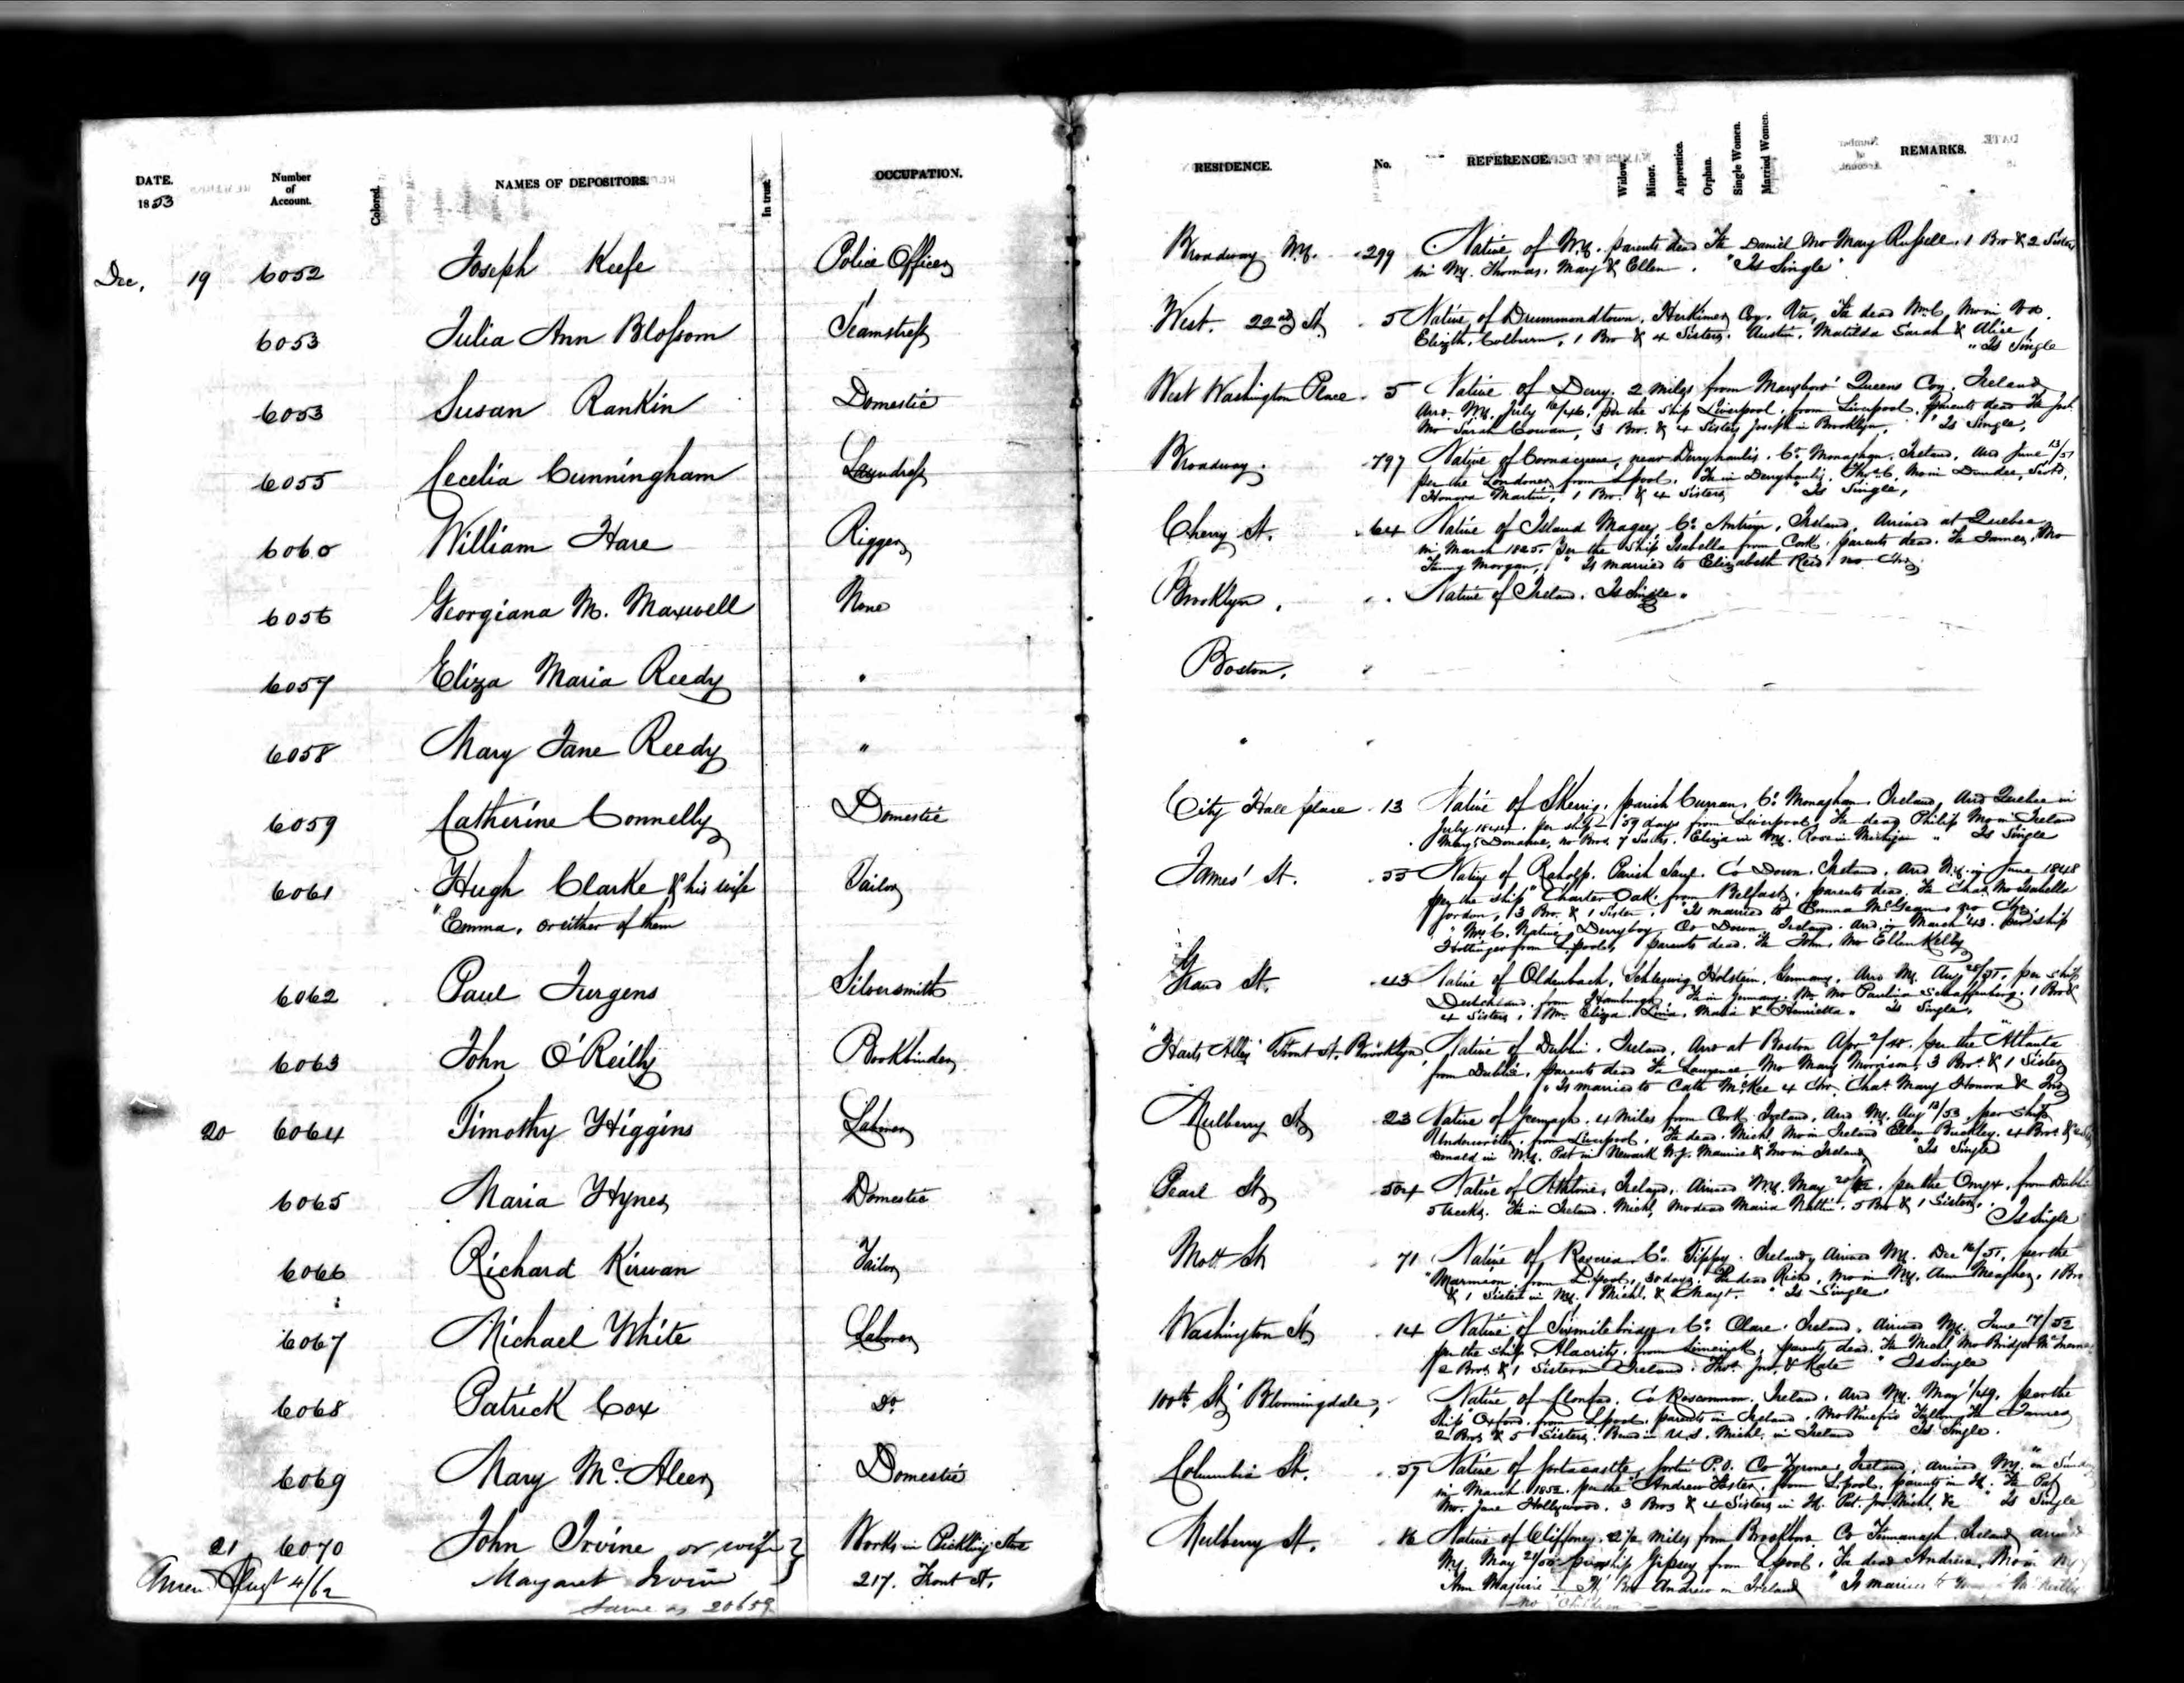 DATE. 1853 Number of Account. Colored. NAMES OF DEPOSITORS. In trust. OCCUPATION. RESIDENCE. No. REFERENCE. Widow. Minor. Apprentice. Orphan. Single Women. Married Women. REMARKS.
Dec. 19 6052 Joseph Keefe Police Officer Broadway N.Y. 299 Native of N.Y. parents dead Fa Daniel Mo Mary Russell. 1 Bro & 2 Sisters
in NY. Thomas, Mary & Ellen. "Is Single"
6053 Julia Ann Blossom Seamstress West. 22nd St 5 Native of Drummondtown, Herkimer Coy. Va, Fa dead Wm C, Mo in
Elizth. Colburn, 1 Bro & 4 Sisters. Austin, Matilda Sarah & Alice
"Is Single
6053 Susan Rankin Domestic West Washington Place 5 Native of Derry. 2 miles from Marysboro' Queens Coy. Ireland,
Arrd. NY. July /46, per the ship Liverpool, from Liverpool. Parents dead Fa
Mo Sarah Cowan, 3 Bro. & 4 Sisters Joseph in Brooklyn, "Is Single,
6055 Cecelia Cunningham Laundress Broadway. 797 Native of near Derryhanlis, Co. Monaghan, Ireland, Arrd June 13/51
per the Londoner from Lpool. Fa in Derryhanlis, Thos C, Mo in Dundee, Scotd,
Honora Martin, 1 Bro. & 4 Sisters "Is Single,
6060 William Hare Rigger Cherry St. 64 Native of Island Magee, Co. Antrim, Ireland, Arrived at Quebec
in March 1825, Per the Ship Isabella from Cork, parents dead. Fa James, Mo
Fanny Morgan, "Is married to Elizabeth Reid no Chn.
6056 Georgiana M. Maxwell None Brooklyn. " Native of Ireland. Is Single.
6057 Eliza Maria Reedy " Boston, "
6058 Mary Jane Reedy " " "
6059 Catherine Connelly Domestic City Hall place 13 Native of Skerrig, parish Curran, Co. Monaghan, Ireland, Arrd Quebec in
July 1844, per ship 59 days from Liverpool, Fa dead Philip Mo in Ireland
Mary Donahue, no Bros. 7 Sisters. Eliza in NY. Rose in Michigan " Is Single
6061 Hugh Clarke & his wife Tailor James' St. 55 Native of Raholp. Parish Saul. Co Down. Ireland. Arrd N.Y. in June 1848
"Emma, or either of them per the ship "Charter Oak. from Belfast, parents dead. Fa Chas. Mo Isabella
Jordon, 3 Bro. & 1 Sister. "Is married to Emma McGean, no Chn,
"Mrs C. Native Derryboy Co Down Ireland. Arrd in March '43. per ship
Hottinger from L.pool, parents dead. Fa John, Mo Ellen Kelly
6062 Paul Jurgens Silversmith Grand St. 43 Native of Oldenbach, Schleswig Holstein, Germany, Arrd NY. Aug 25/51, per ship
Deutchland, from Hamburgh, Fa in Germany. Mo Paulina Schaffenberg. 1 Bro &
4 Sisters, Wm. Eliza, Maria & Henrietta. "Is Single,
6063 John O'Reilly Bookbinder "Harts Alley" Front St. Brooklyn, Native of Dublin, Ireland, Arrd at Boston Apr 2/40. per the "Atlanta
from Dublin, parents dead Fa Lawrence, Mo Mary Morrison, 3 Bro & 1 Sister
"Is married to Cath McKee 4 Chn. Chas Mary Honora & Jno
20 6064 Timothy Higgins Laborer Mulberry St 23 Native of 4 miles from Cork, Ireland, Arrd NY. Aug 12/53, per Ship
Underwriter, from Liverpool, Fa dead, Michl Mo in Ireland Ellen Buckley. 4 Bro &
Donald in N.Y. Pat in Newark N.J. Maurice & Mo in Ireland, "Is Single
6065 Maria Hynes Domestic Pearl St 504 Native of Athlone, Ireland, Arrived NY. May 20/52, per the Onyx, from Dublin
5 weeks. Fa in Ireland. Michl, Mo dead Maria 5 Bro & 1 Sister,
Is Single
6066 Richard Kirwan Tailor Mott St 71 Native of Roscrea Co. Tippy. Ireland, Arrived NY. Dec 16/51, per the
"Marmion, from Lpool, 30 days. Fa dead Richd, Mo in NY. Ann Meagher, 1 Bro
& 1 Sister in NY. Michl. & Margt. "Is Single,
6067 Michael White Laborer Washington St 14 Native of Sixmilebridge, Co. Clare. Ireland, Arrived NY. June 17/52
per the Ship Alacrity, from Limerick, parents dead. Fa Michl Mo Bridget
2 Bros. & 1 Sister in Ireland. Thos. Jno. & Kate "Is Single
6068 Patrick Cox Do. 100th St Bloomingdale, Native of Clonfad, Co Roscommon, Ireland, Arrd NY. May 1/49, per the
Ship Oxford, from Lpool, parents in Ireland. Mo Winefrid Fallon Fa James
2 Bros & 5 Sisters. Bernd in U.S. Michl. in Ireland "Is Single.
6069 Mary McAleer Domestic Columbia St. 57 Native of fortacastle, P.O. Co Tyrone, Ireland, arrived NY. on Sunday
in March 1852, per the "Andrew Foster, from Lpool, parents in Id. Fa Pat
Mo. Jane Hollywood. 3 Bros & 4 Sisters in Id. Pat. Jno. Michl, &c "Is Single
21 6070 John Irvine or wife } Works in Pickling Store Mulberry St. 16 Native of Cliffoney, 2 1/2 miles from Co Fermanagh Ireland, arrived
Amend August 4/62 Margaret Irvine 217. Front St. NY. May 21/50 per ship Gipsey from Lpool. Fa dead Andrew, Mo in NY
Ann Maguire Bro Andrew in Ireland "Is married to
Same as 20659 no Children